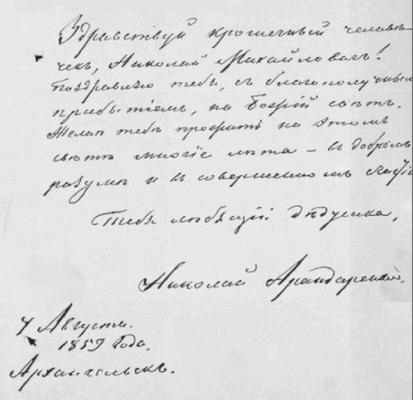 Здравствуй крошечный челове-
чекъ, Николай Михайловичъ!
Поздравляю тебя, съ благополучнымъ
прибытіемъ, на Божій свѣтъ.
Желаю тебѣ прожить на этомъ
свѣтѣ многіе лѣта – въ добромъ
разумѣ и въ совершенномъ
Тебя любящій дѣдушка,
Николай Арандаренко.
4 Августа.
1859 года.
Архангельскъ.